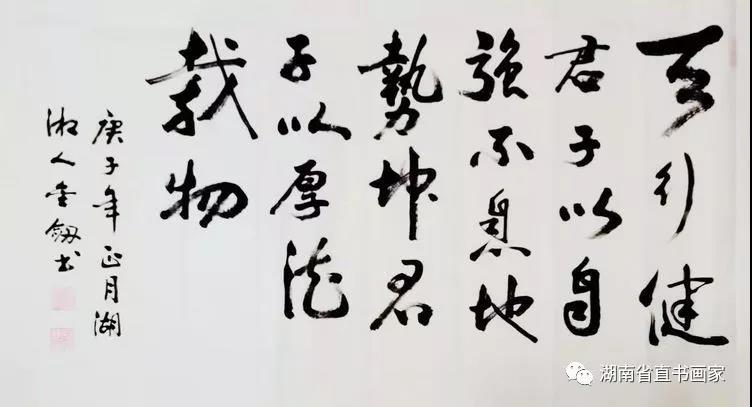 天行健
君子以自
强不息地
勢坤君
子以厚德
載物
庚子年正月湖
湘人金釼书
湖南省直书画家